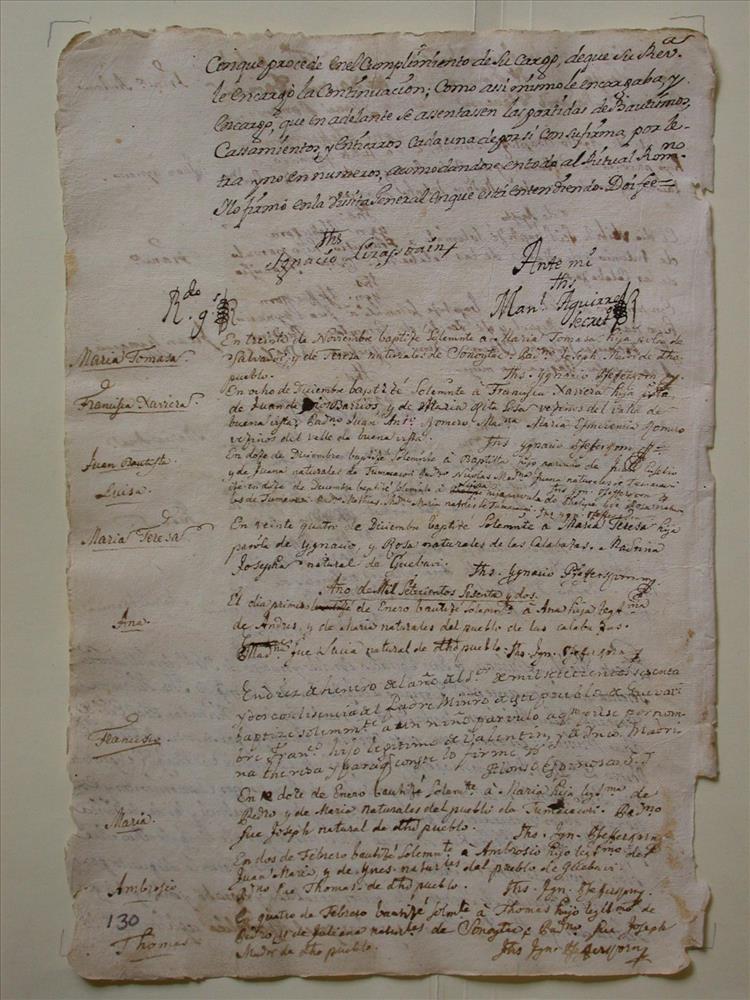 Con que procede en el Cumplimiento de Su Cargo, de que Su Rev.a
le encargò la Continuacion; Como assi mismo le encargaba, y
encargò, que en adelante se assentasen las partidas de Bautismos,
Cassamientos, y Entierros cada una de por si con su firma, por le-
tra y no en numeros, acomodandose en todo al Ritual Rom.no
Assi lo firmò en la Visita General en que està entendiendo. Doi fee=
Jhs
Ygnacio Lizassoain
Ante mi
Jhs
R.do g.s
Man.l Aguirre
Secret.o
Maria Tomasa.
En treinte de Noviembre baptize solemnte à Maria Tomasa hija parv.a de
Salvador, y de Teresa naturales de Sonoytac. Joseph de dho
pueblo. Jhs. Ygnacio Pfefferkorn
Francisca Xaviera
En ocho de Diciembre baptizé Solemnte à Francisca Xaviera hija
de Juan de Barrios, y de Maria Rita Sosa vezinos del valle de
buena vista. Padno Juan Ant.o Romero Madna Maria Romero
vezinos del valle de buena vista. Jhs Ygnacio Pfefferkorn
Juan Bautista
En doze de Diciembre baptizé Solemnte à Baptista hijo parvulo de
y de Juana naturales de Tumacacori Padno Nicolas Madna Juana naturales de Tumacacori
Luisa.
En doze de Deciembre baptizé Solemnte à
les de Tumacacori. Padno Mathias, Madna Maria naturales de Tumacacori Jhs Ygn. Pfefferkorn
Maria Teresa
En veinte quatro de Diciembre baptizé Solemnte à Maria Teresa hija
parvla de Ygnacio, y Rosa naturales de las Calabazas. Madrina
Josepha natural de Guebavi. Jhs. Ygnacio Pfefferkorn
Año de Mil Setecientos Sesenta y dos.
Ana.
El dia primero de Enero bautizé solemnte à Ana hija legitma
de Andres, y de Maria naturales del pueblo de las calabazas.
Madna fue Lucia natural de dho pueblo. Jhs. Ygn. Pfefferkorn
Francisco
En diez de henero de el año de mil setecientos sesenta
y dos con lisencia del Padre Minro de este pueblo de Guevavi
baptize solemmte a un niño parvulo a qn puse por nom-
bre Franco hijo legitimo de Valentin, y de Madri-
na theresa y para que conste lo firme
Alonso Espinosa
Maria.
En doze de Enero bautizé Solemte à Maria hija legma de
Pedro, y de Maria naturales del pueblo de Tumacacori. Padno
fue Joseph natural de dho pueblo. Jhs. Ign. Pfefferkorn
Ambrosio
En dos de Febrero bautizé Solemnte à Ambrosio hijo legmo de
Juan Maria, y de Ynes naturles del pueblo de Guebavi
Pno fue Thomas de dho pueblo. Jhs. Ign. Pfefferkorn
130
Thomas
En quatro de Febrero bautizé solemte à Thomas hijo legtmo de
Pedro, y de Juliana naturles de Sonoytac Padno fue Joseph
Mador de dho pueblo. Jhs Ignac Pfefferkorn